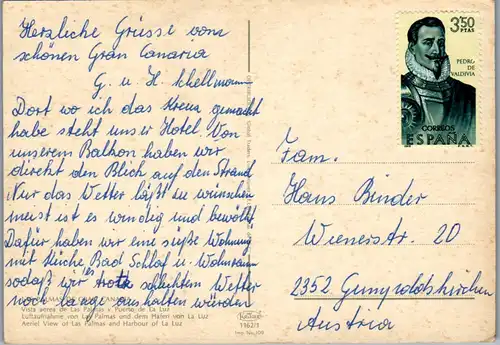 Herzliche Grüsse vom
schönen Gran Canaria
G. u. H. Schellmann
Dort wo ich das Kreuz gemacht
habe steht unser Hotel. Von
unserem Balkon haben wir
direkt den Blick auf den Strand
Nur das Wetter läßt zu wünschen
meist ist es windig und bewölkt
Dafür haben wir eine süße Wohnung
mit Küche Bad Schlaf u. Wohnraum
sodaß wir trotz schlechten Wetter
noch lange aushalten würden
Vista aerea de Las Palmas y Puerto de La Luz
Luftaufnahme von Las Palmas und dem Hafen von La Luz
Aeriel View of Las Palmas and Harbour of La Luz
1962/1
3'50
PTAS
PEDRO
DE
VALDIVIA
CORREOS
ESPAÑA
Fam.
Hans Binder
Wienerstr. 20
2352 Gumpoldskirchen
Austria